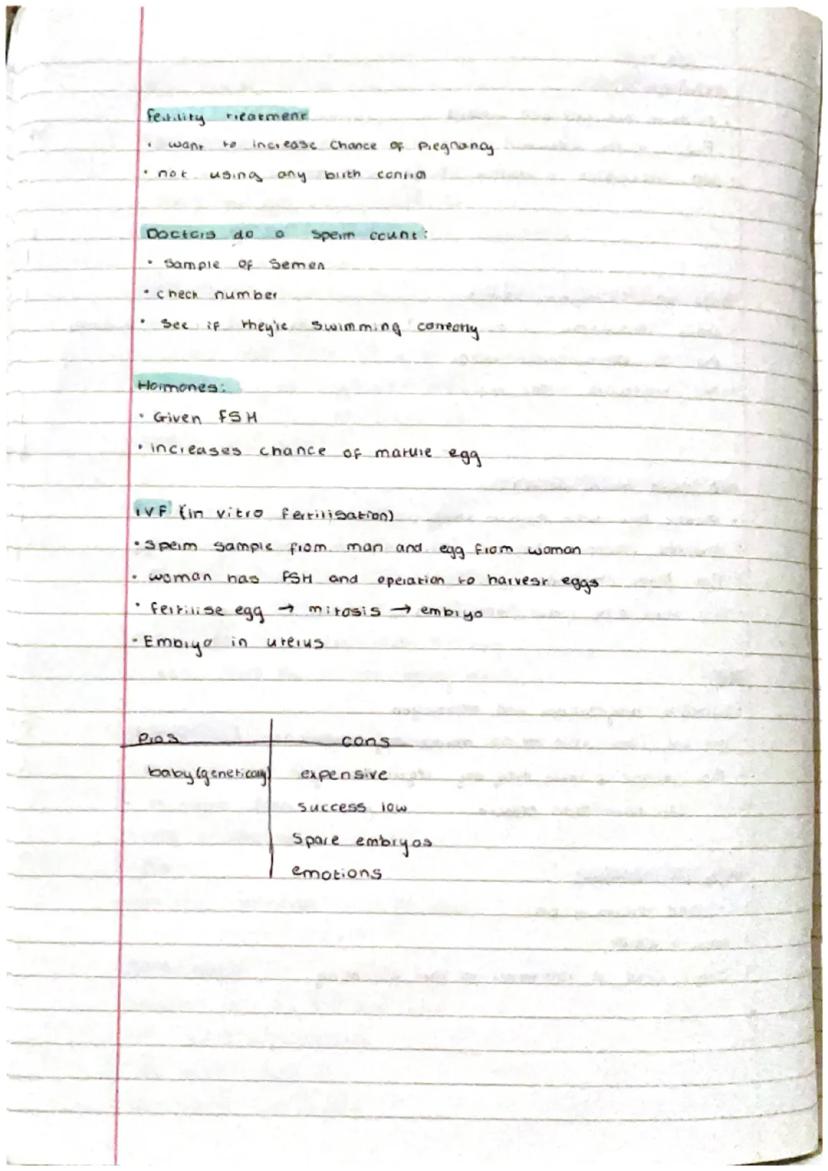 Fertility treatment
· want to increase chance of pregnancy
· not using any birth control
Doctors do a sperm count:
· sample of semen
· check number
· see if they're swimming correctly
Hormones:
· Given FSH
· increases chance of mature egg
IVF (in vitro fertilisation)
· sperm sample from man and egg from woman
· woman has FSH and operation to harvest eggs
· fertilise egg → mitosis → embryo
- Embryo in uterus
Pros cons
baby (genetically) expensive
success low
Spare embryos
emotions